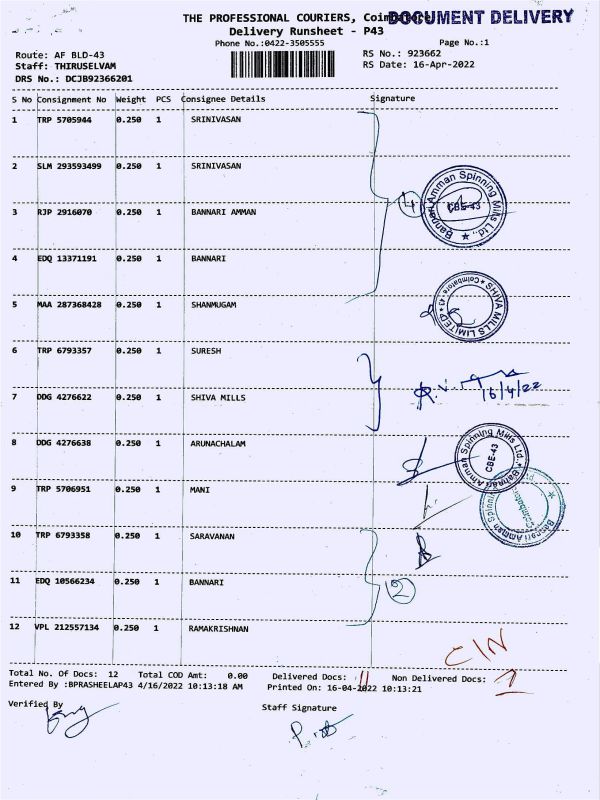 DOCUMENT DELIVERY
THE PROFESSIONAL COURIERS, Coimbatore
Delivery Runsheet - P43
Phone No.:0422-3505555
Page No.:1
Route: AF BLD-43
RS No.: 923662
Staff: THIRUSELVAM
RS Date: 16-Apr-2022
DRS No.: DCJB92366201
S No Consignment No Weight PCS Consignee Details Signature
1 TRP 5705944 0.250 1 SRINIVASAN
2 SLM 293593499 0.250 1 SRINIVASAN
4
Bannari Amman Spinning Mills Ltd.,
CBE-43
3 RJP 2916070 0.250 1 BANNARI AMMAN
4 EDQ 13371191 0.250 1 BANNARI
5 MAA 287368428 0.250 1 SHANMUGAM
SHIVA MILLS LIMITED
Coimbatore 43
6 TRP 6793357 0.250 1 SURESH
7 DDG 4276622 0.250 1 SHIVA MILLS
16/4/22
8 DDG 4276638 0.250 1 ARUNACHALAM
Bannari Amman Spinning Mills Ltd.,
CBE-43
9 TRP 5706951 0.250 1 MANI
Bannari Amman Spinning
Coimbatore
10 TRP 6793358 0.250 1 SARAVANAN
11 EDQ 10566234 0.250 1 BANNARI
2
12 VPL 212557134 0.250 1 RAMAKRISHNAN
C/N
Total No. Of Docs: 12 Total COD Amt: 0.00 Delivered Docs: 11 Non Delivered Docs: 1
Entered By :BPRASHEELAP43 4/16/2022 10:13:18 AM Printed On: 16-04-2022 10:13:21
Verified By
Staff Signature